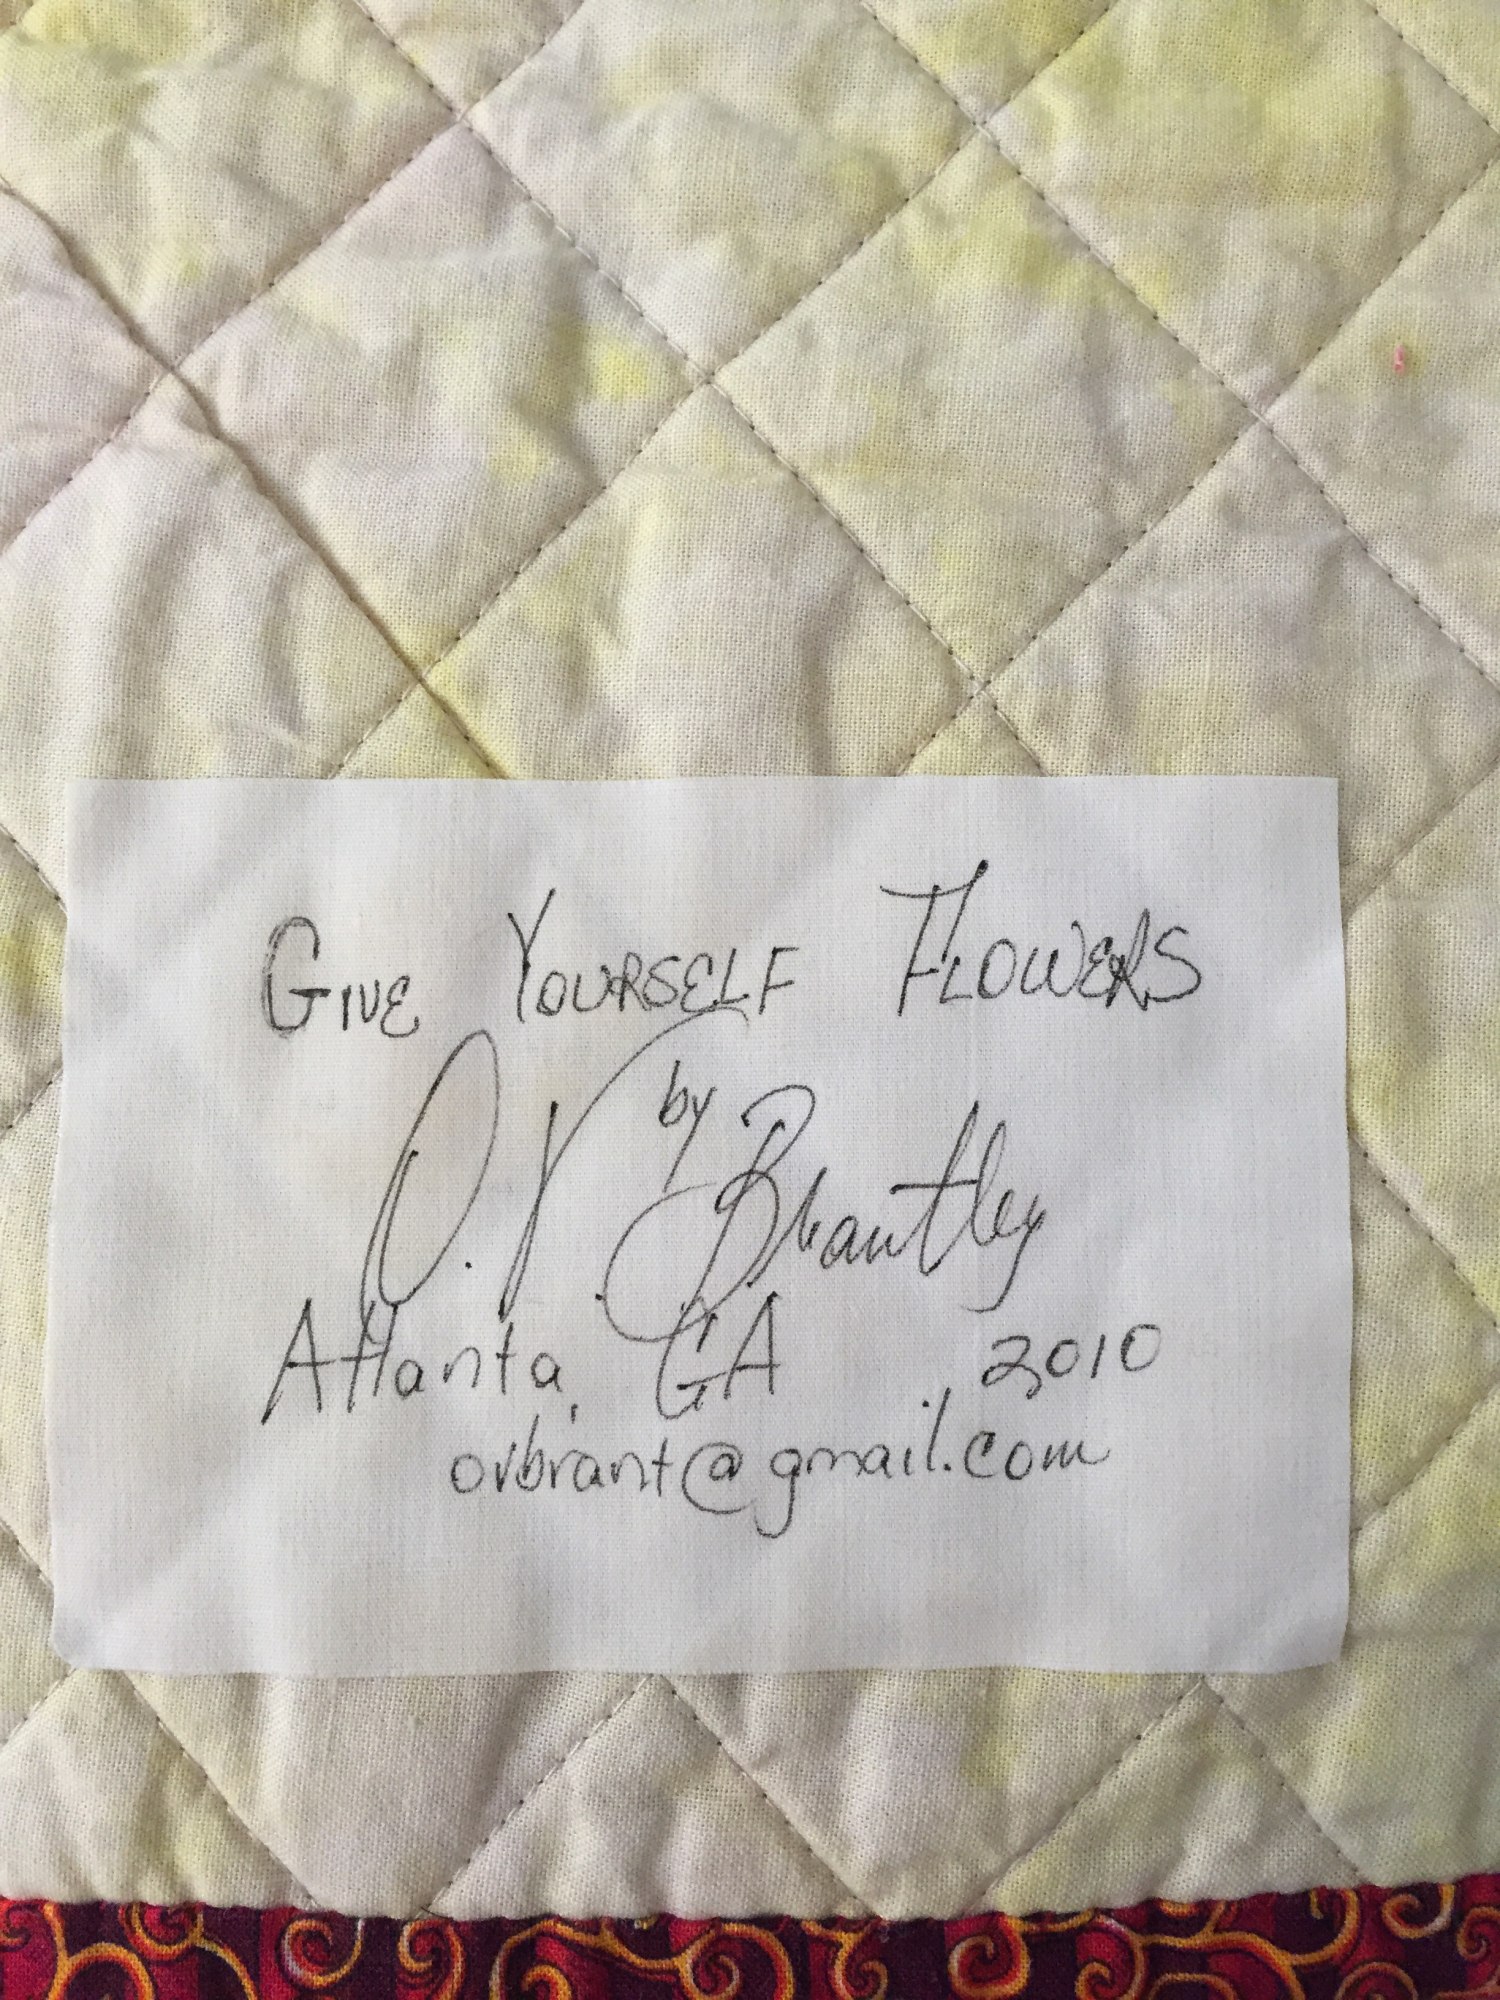 GIVE YOURSELF FLOWERS
by
O.V. Brantley
Atlanta, GA 2010
ovbrant@gmail.com